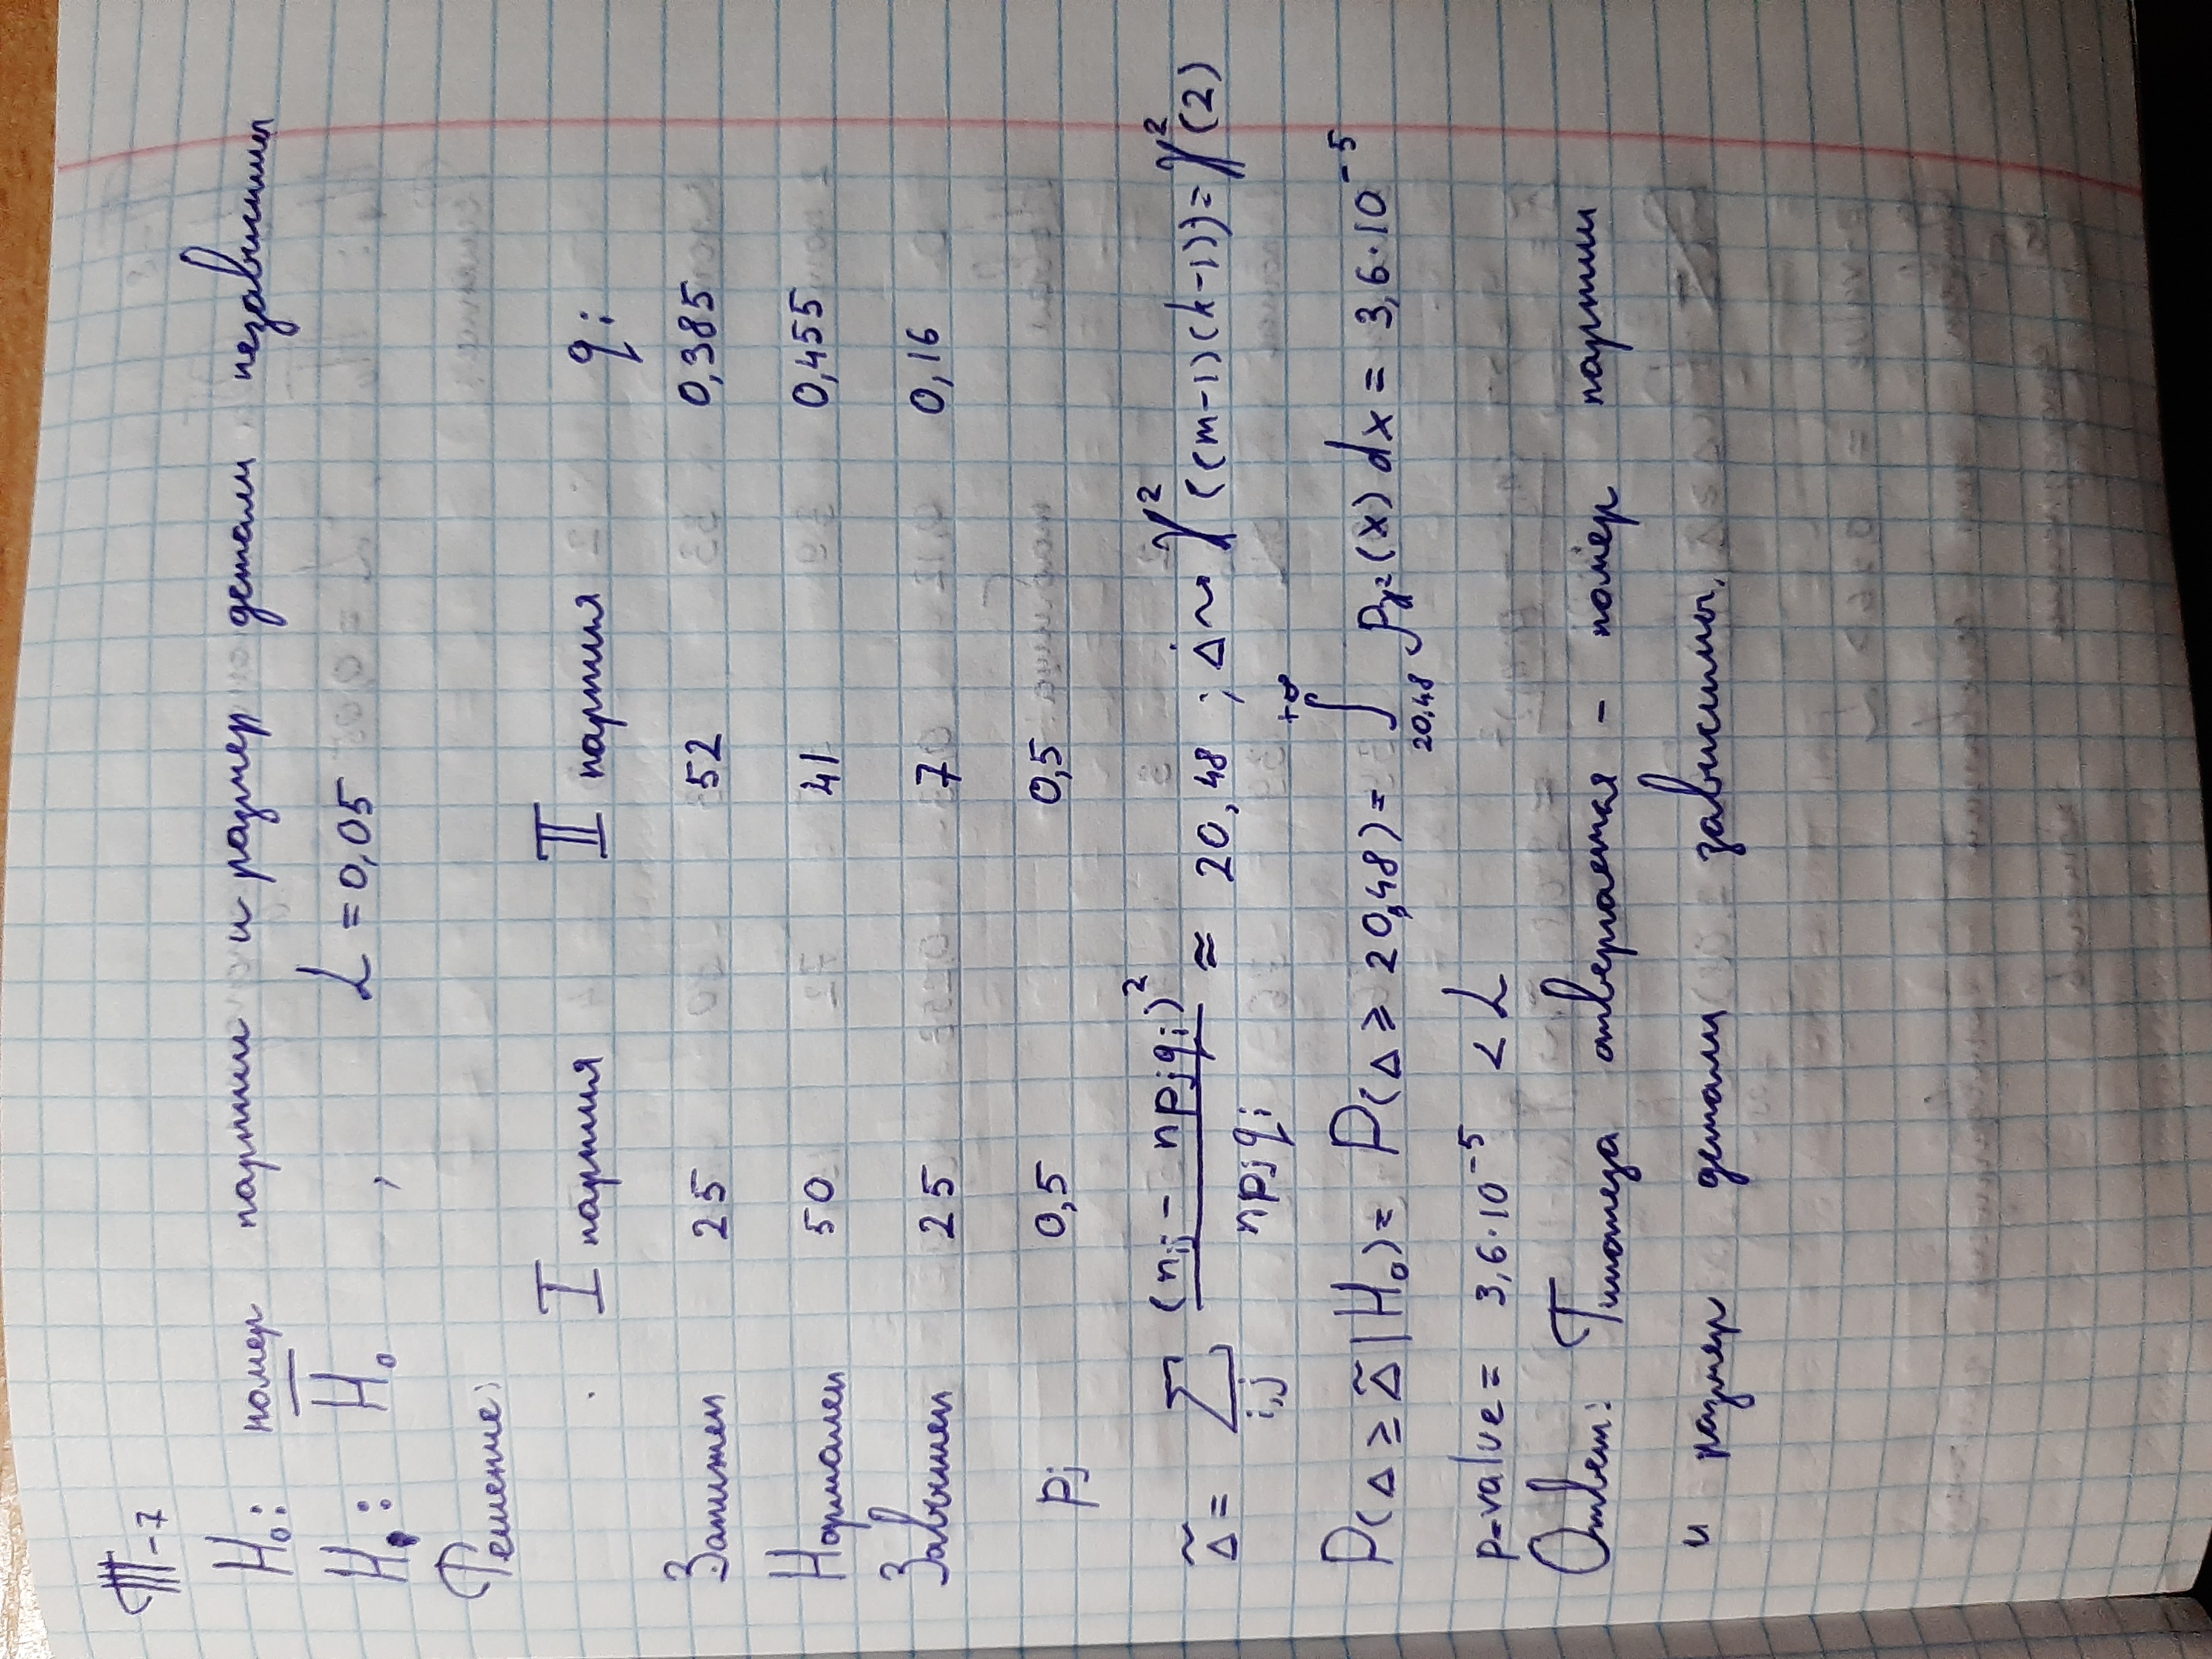 Т-7
H₀: номер партии и размер детали независимы
H₁: H̅₀ , α = 0,05
Решение:
I партия II партия qᵢ
Занижен 25 52 0,385
Нормален 50 41 0,455
Завышен 25 7 0,16
pⱼ 0,5 0,5
Δ̃ = Σ_{i,j} (nᵢⱼ - npⱼqᵢ)² / npⱼqᵢ ≈ 20,48 ; Δ ~ χ²((m-1)(k-1)) = χ²(2)
P(Δ ≥ Δ̃ | H₀) = P(Δ ⩾ 20,48) = ∫_{20,48}^{+∞} p_{χ²}(x) dx = 3,6·10⁻⁵
p-value = 3,6·10⁻⁵ < α
Ответ: Гипотеза отвергается - номер партии
и размер детали зависимы.